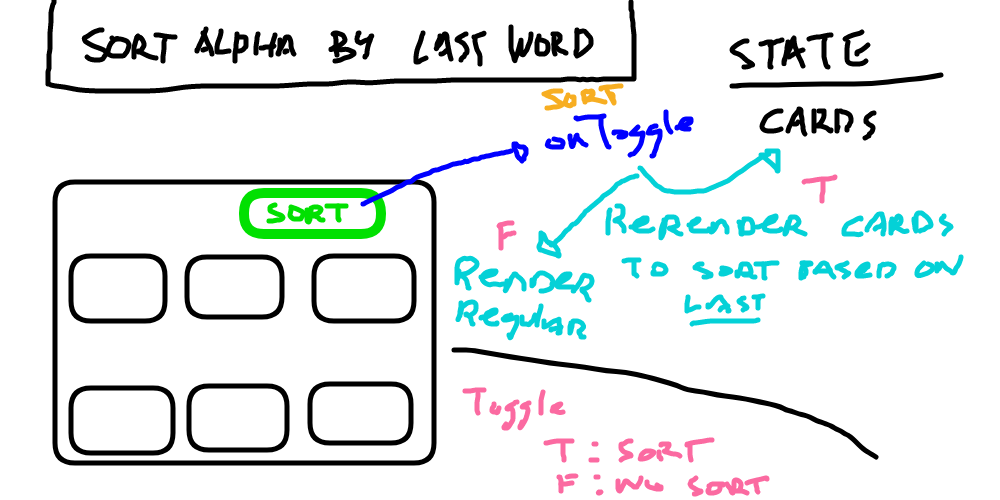 SORT ALPHA BY LAST WORD
STATE
CARDS
SORT
onToggle
SORT
T
F
RERENDER CARDS
TO SORT BASED ON
LAST
RENDER
RegulAR
Toggle
T : SORT
F : NO SORT